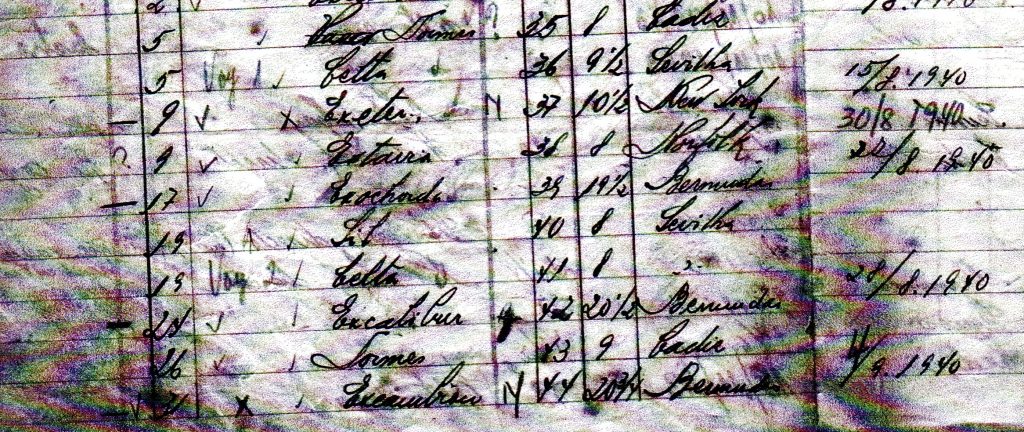 5 Tormes ? 35 8 Cadix
5 Voy 1 Celta 36 9½ Sevilha 15/8.1940
— 9 ✓ x Exeter N 37 10½ New York 30/8 1940
? 9 ✓ 38 8 Norfolk /8.1940
— 17 ✓ Exochorda 39 19½ Bermudas
19 Sil 40 8 Sevilha
19 Voy 2 Celta 41 8 " 28/8.1940
— 24 ✓ Excalibur 42 20½ Bermudas
26 ✓ Tormes 43 9 Cadix 4/9.1940
x Excambion N 44 20¾ Bermudas